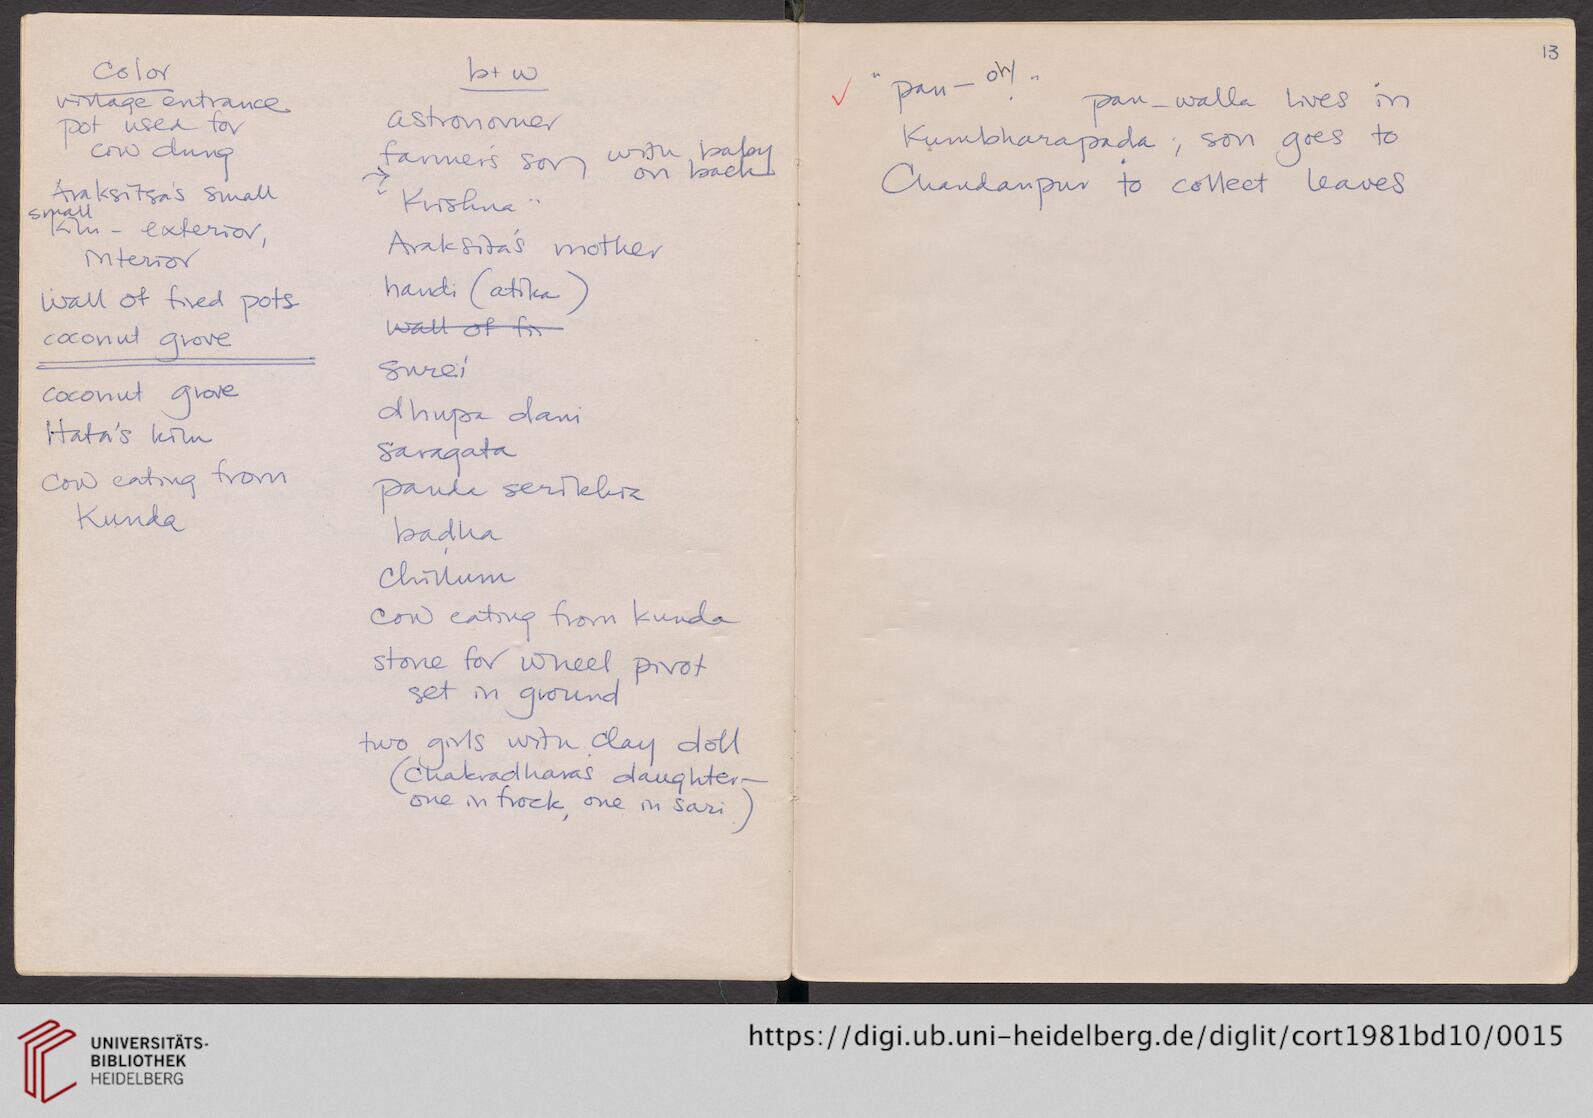 color
village entrance
pot used for
cow dung
Araksita's small
small
kiln - exterior,
interior
wall of fired pots
coconut grove
coconut grove
Hata's kiln
cow eating from
Kunda
b+w
astronomer
farmer's son with baby
on back
Krishna "
Araksita's mother
handi (atika)
wall of fir
surei
dhupa dani
saragata
panda
badha
chillum
cow eating from kunda
stone for wheel pivot
set in ground
two girls with clay doll
(Chakradhara's daughter—
one in frock, one in sari.)
13
✓ "pan-oh!" pan-walla lives in
Kumbharapada; son goes to
Chandanpur to collect leaves
UNIVERSITÄTS-
BIBLIOTHEK
HEIDELBERG
https://digi.ub.uni-heidelberg.de/diglit/cort1981bd10/0015